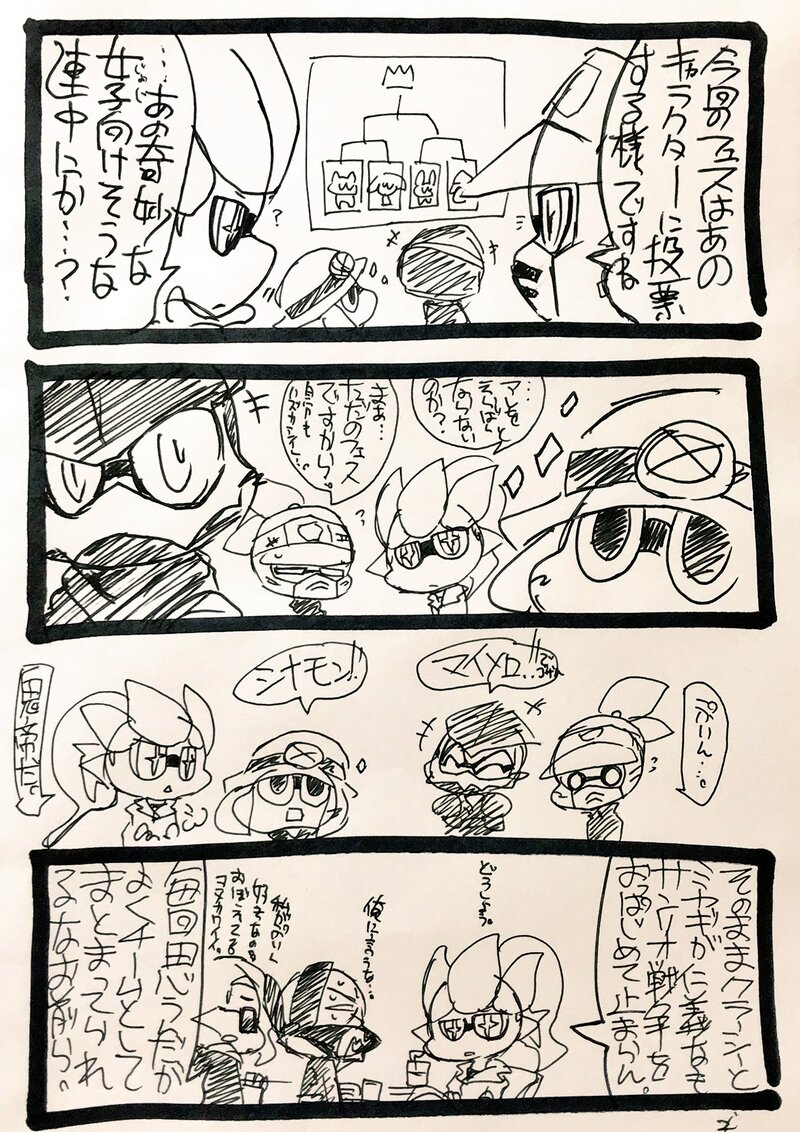 今回のフェスはあの
キャラクターに投票
する様ですね
…あの奇妙な
女子向けそうな
連中にか…?
アレを
えらばと
ならない
のか?
まぁ…
ただのフェス
ですから。
マイメロ…
シナモン!!
ぷりん…。
そのままクラーシーと
ミヤギが仁義なき
サンリオ戦争を
おっぱじめて止まらん。
どうしよう。
俺に言うな…
私の
好きなのを
おぼえてる
毎回思うんだが
よくチームとして
まとまってられ
るなお前ら。